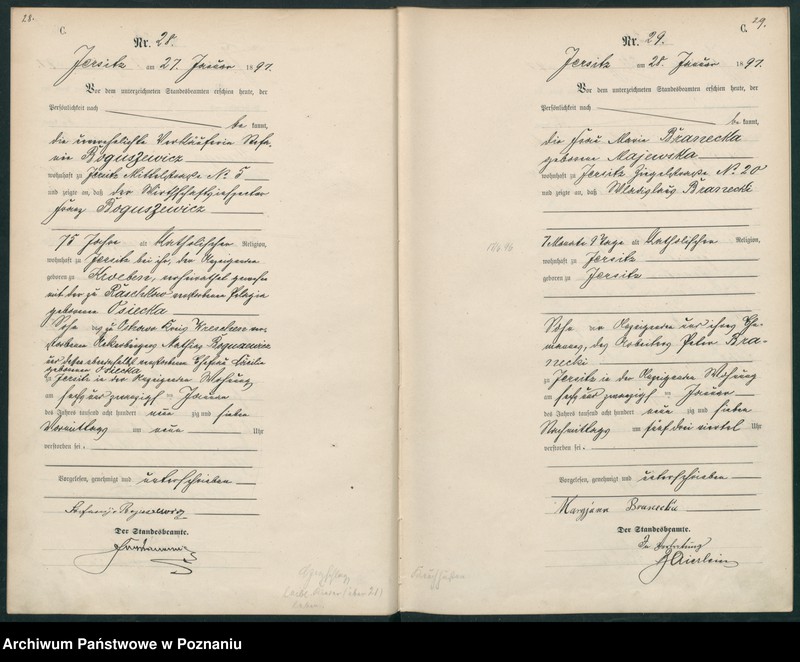 28.
C.
Nr. 28.
Jersitz am 27. Januar 1897.
Vor dem unterzeichneten Standesbeamten erschien heute, der
Persönlichkeit nach
be kannt,
die unverehelichte Verkäuferin Stefa-
nie Boguszewicz
wohnhaft zu Jersitz Mittelstraße No 5
und zeigte an, daß der Wirthschaftsinspector
Franz Boguszewicz
75 Jahre alt Katholischer Religion,
wohnhaft zu Jersitz bei ihr, der Anzeigenden
geboren zu verheirathet gewesen
mit der zu Raschkow verstorbenen Pelagia
geborene Osiecka
Sohn des zu Kreis Wreschen ver-
storbenen Mathias Boguszewicz
und dessen ebenfalls verstorbene Ehefrau Cäcilie
geborene Osiecka
zu Jersitz in der Anzeigenden Wohnung
am sechs und zwanzigsten Januar
des Jahres tausend acht hundert neun zig und sieben
Vormittags um neun Uhr
verstorben sei.
Vorgelesen, genehmigt und unterschrieben
Stefania Boguszewicz
Der Standesbeamte.
C. 29.
Nr. 29.
Jersitz am 28. Januar 1897.
Vor dem unterzeichneten Standesbeamten erschien heute, der
Persönlichkeit nach
be kannt,
die Frau Marie Branecka
geborene Majewska
wohnhaft zu Jersitz Ziegelstraße No 20
und zeigte an, daß Wladislaus Branecki
7 Monate 1 Tage alt Katholischer Religion,
wohnhaft zu Jersitz
geboren zu Jersitz
Sohn der Anzeigenden und ihres Ehe-
mannes, des Arbeiters Peter Bra-
necki
zu Jersitz in der Anzeigenden Wohnung
am sechs und zwanzigsten Januar
des Jahres tausend acht hundert neun zig und sieben
Nachmittags um fünf drei viertel Uhr
verstorben sei.
Vorgelesen, genehmigt und unterschrieben
Maryjana Branecka
Der Standesbeamte.
In Vertretung
Archiwum Państwowe w Poznaniu